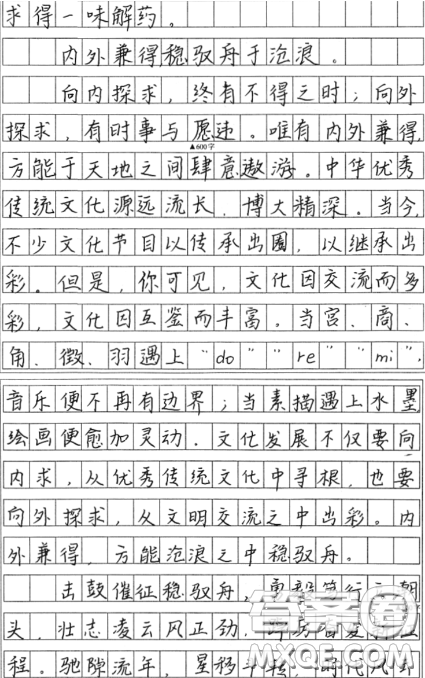 求得一味解药。
内外兼得,稳驭舟于沧浪。
向内探求，终有不得之时；向外
探求，有时事与愿违。唯有内外兼得，
▲600字
方能于天地之间肆意遨游。中华优秀
传统文化源远流长，博大精深。当今，
不少文化节目以传承出圈，以继承出
彩。但是，你可见，文化因交流而多
彩，文化因互鉴而丰富。当宫、商、
角、徵、羽遇上“do”“re”“mi”，
音乐便不再有边界；当素描遇上水墨
绘画便愈加灵动．文化发展不仅要向
内求，从优秀传统文化中寻根，也要
向外探求，从文明交流之中出彩。内
外兼得，方能沧浪之中稳驭舟。
击鼓催征稳驭舟，奋楫笃行立潮
头，壮志凌云风正劲，
程。驰隙流年，星移斗转，时代
答案圈
MXQE.COM